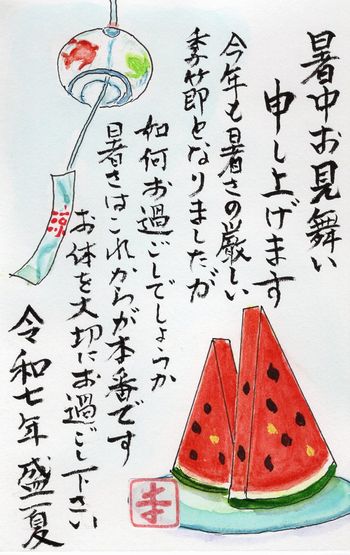 暑中お見舞い
申し上げます
今年も暑さの厳しい
季節となりましたが
如何お過ごしでしょうか
暑さはこれからが本番です
お体を大切にお過ごし下さい
令和七年盛夏
涼